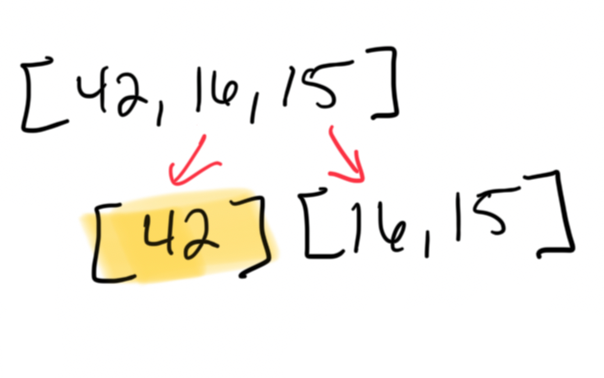 [42, 16, 15]
[42] [16, 15]